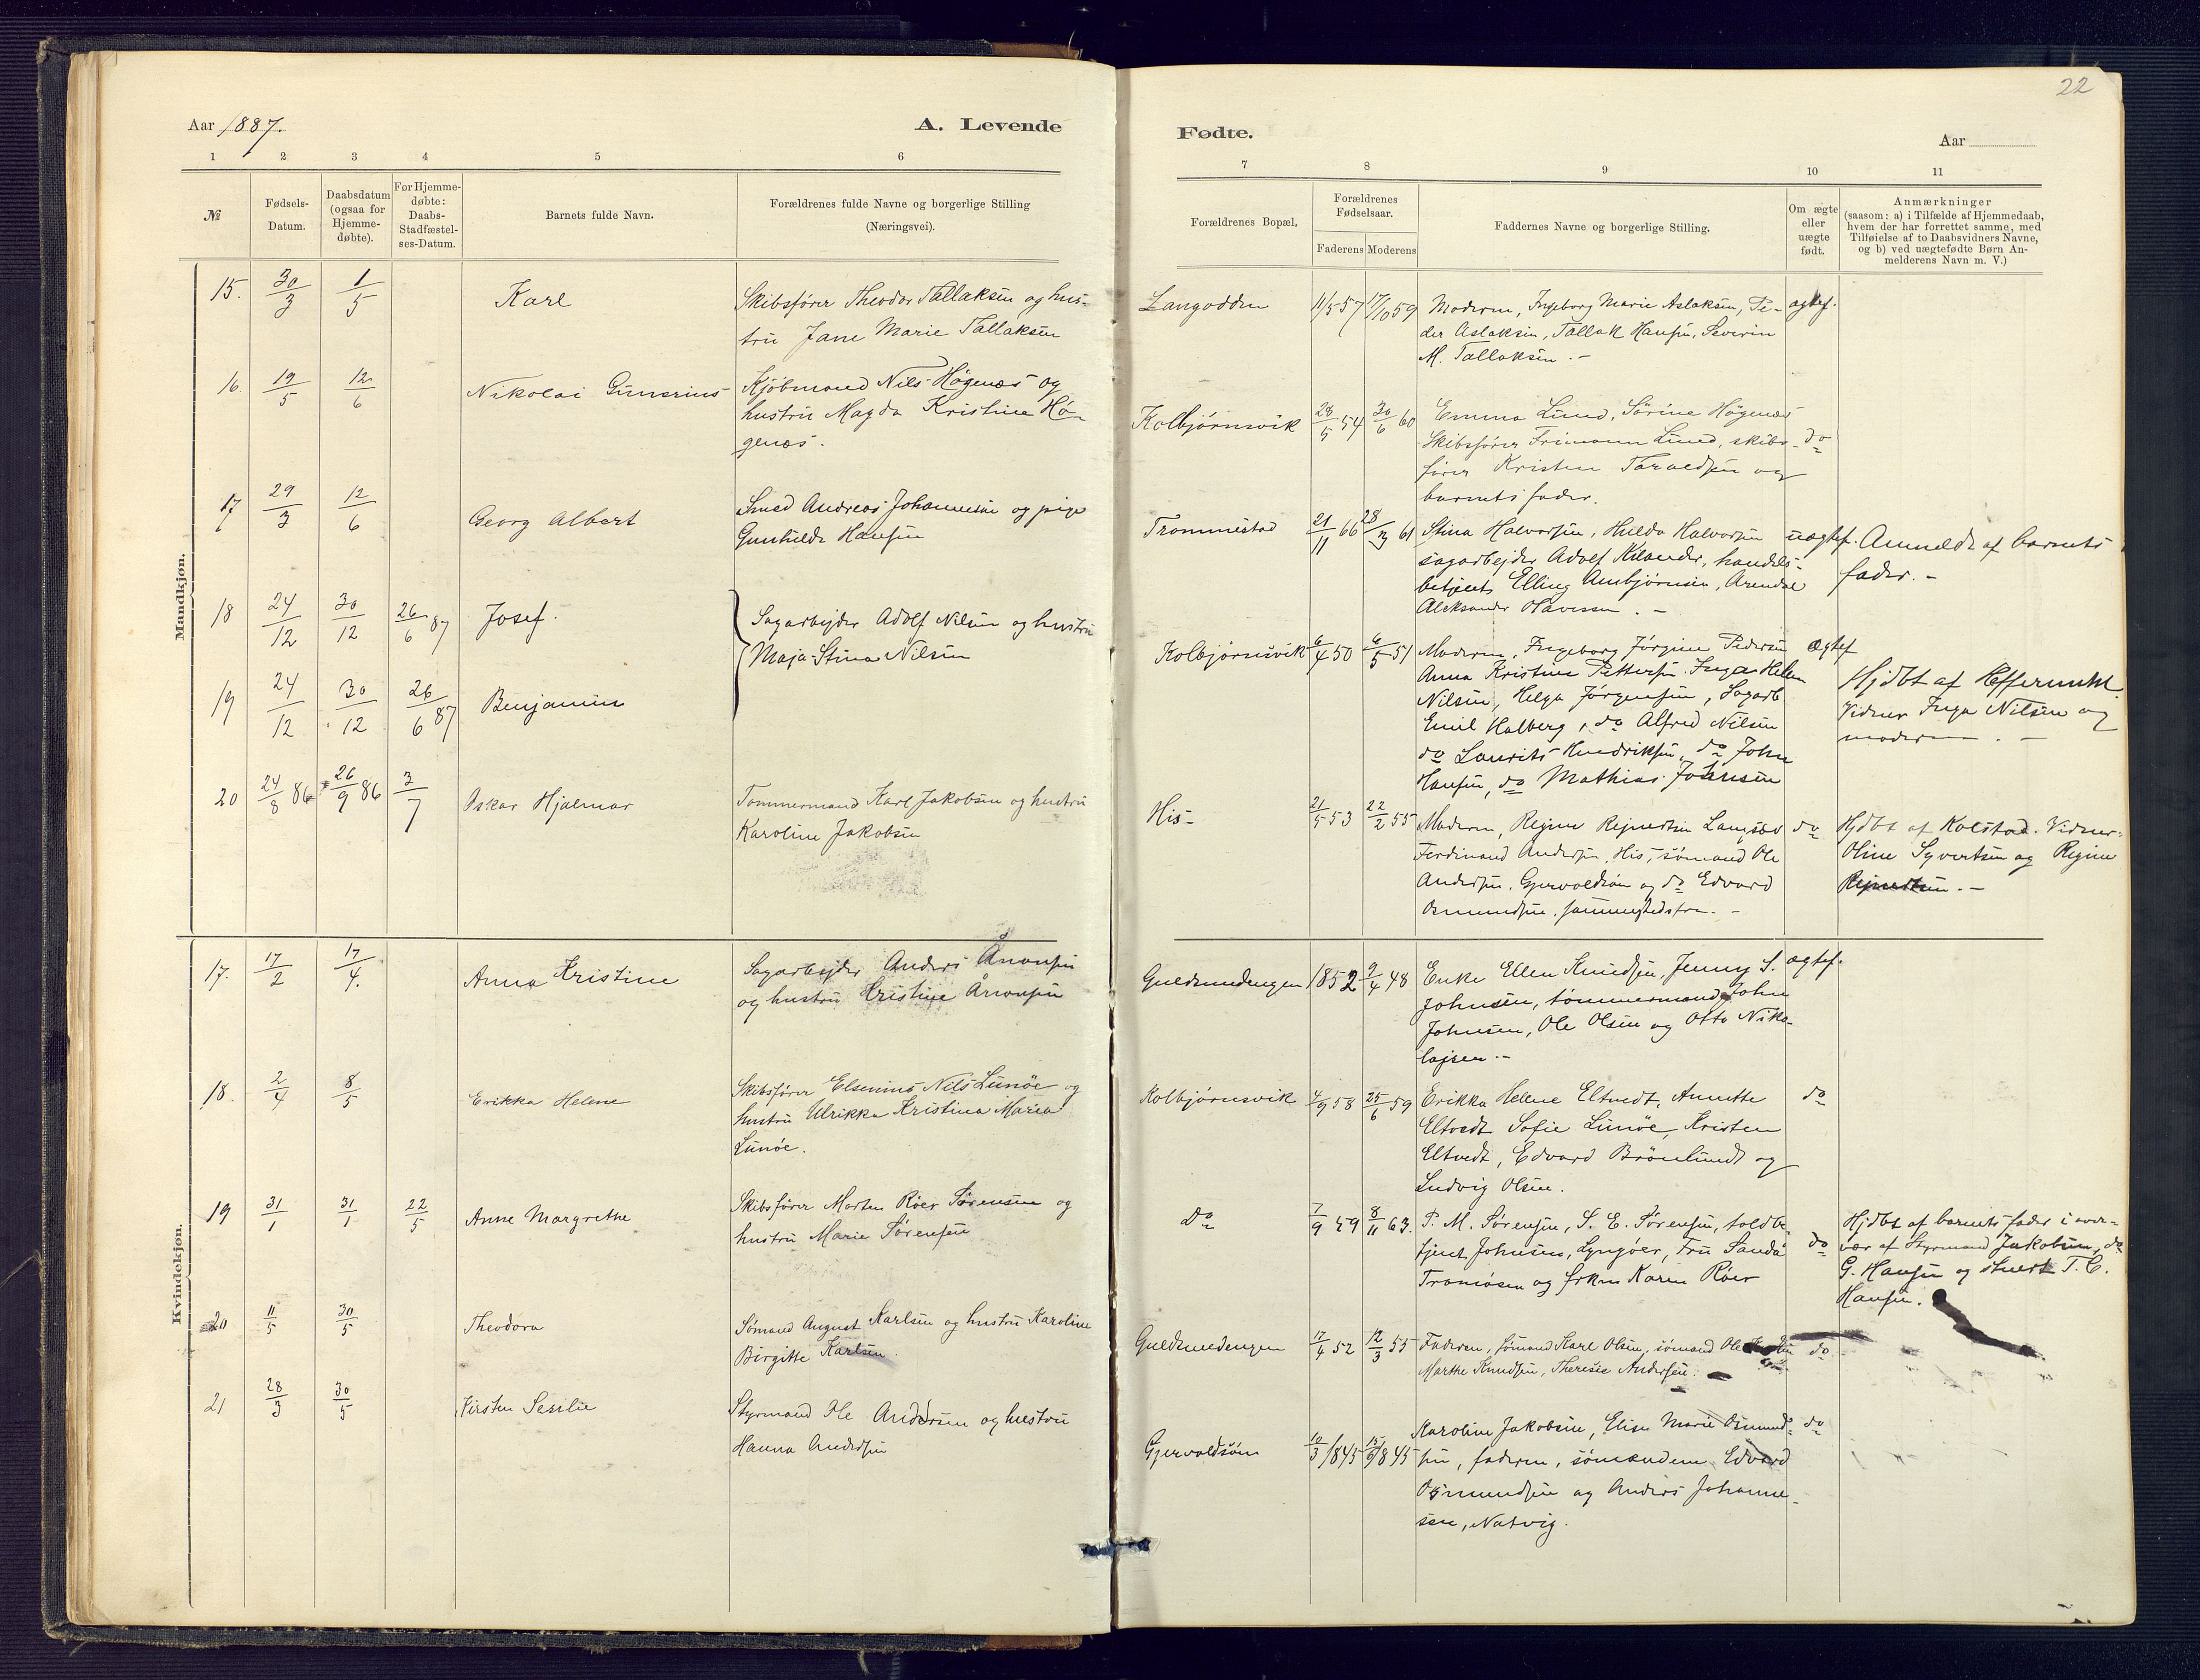 22
Aar 1887.
A. Levende
Fødte.
Aar
1 2 3 4 5 6
7 8 9 10 11
№
Fødsels-
Datum.
Daabsdatum
(ogsaa for
Hjemme-
døbte).
For Hjemme-
døbte:
Daabs-
Stadfæstel-
ses-Datum.
Barnets fulde Navn.
Forældrenes fulde Navne og borgerlige Stilling
(Næringsvei).
Forældrenes Bopæl.
Forældrenes
Fødselsaar.
Faderens Moderens
Faddernes Navne og borgerlige Stilling.
Om ægte
eller
uægte
født.
Anmærkninger
(saasom: a) i Tilfælde af Hjemmedaab,
hvem der har forrettet samme, med
Tilføielse af to Daabsvidners Navne,
og b) ved uægtefødte Børn An-
melderens Navn m. V.)
Mandkjøn.
15. 30/3 1/5 Karl
Skibsfører Theodor Tallaksen og hus-
tru Jane Marie Tallaksen
Langodden 11/5 57 17/10 59
Moderen, Ingeborg Marie Aslaksen, Pe-
der Aslaksen, Tallak Hansen, Severin
M. Tallaksen.-
ægtef.
16. 19/5 12/6 Nikolai Gunerius
Kjøbmand Nils Høgenæs og
hustru Magda Kristine Hø-
genæs.
Kolbjørnsvik 28/5 54 30/6 60
Emma Lund, Sørine Høgenæs
Skibsfører Frimann Lund, skibs-
fører Kristen Taraldsen og
barnets fader.
do
17 29/3 12/6 Georg Albert
Smed Andreas Johannesen og pige
Gunhilde Hansen
Trommestad 21/11 66 28/3 61
Stina Halvorsen, Hulda Halvorsen
sagarbejder Adolf Kilander, handels-
betjent Elling Ambjørnsen, Arendal
Aleksander Olavesen.-
uægtef.
Anmeldt af barnets
fader.-
18 24/12 30/12 26/6 87 Josef.
Sagarbejder Adolf Nilsen og hustru
Maja-Stina Nilsen
Kolbjørnsvik 6/4 50 6/5 51
Moderen, Ingeborg Jørgine Pedersen
Anna Kristine Pettersen. Inga Helen
Nilsen, Helga Jørgensen, Sagarb.
Emil Halberg, do Alfred Nilsen
do Laurits Hendriksen, do John
Hansen, do Mathias Johnsen
Ægtef
Hjdbt af
Vidner Inga Nilsen og
moderen.-
19 24/12 30/12 26/6 87 Benjamin
20 24/8 86 26/9 86 3/7 Oskar Hjalmar
Tømmermand Karl Jakobsen og hustru
Karoline Jakobsen
His- 21/5 53 22/2 55
Moderen, Regine Rejnertsen Langsæv
Ferdinand Andersen, His, sømand Ole
Andersen, Gjervoldsøen og do Edvard
Osmundsen, sammestedsfra.-
do
Hjdbt af Kolstad. Vidner:
Oline Syvertsen og Regine
Rejnertsen.-
Kvindekjøn.
17. 17/2 17/4. Anna Kristine
Sagarbejder Anders Aronsen
og hustru Kristine Aronsen
Guldsmedengen 1852 9/4 48
Enke Ellen Knudsen, Jenny S.
Johnsen, tømmermand John
Johnsen, Ole Olsen og Otto Niko-
lajsen.-
ægtef.
18. 2/4 8/5 Erikka Helene
Skibsfører Elsenius Nils Lunøe og
hustru Ulrikka Kristina Maria
Lunøe.
Kolbjørnsvik 4/9 58 25/6 59
Erikka Helene Eltvedt, Annette
Eltvedt Sofie Lunøe, Kristen
Eltvedt, Edvard Brönlundt og
Ludvig Olsen.
do
19 31/1 31/1 22/5 Anne Margrethe
Skibsfører Morten Röer Sørensen og
hustru Marie Sørensen
do 7/9 59 8/11 63.
P. M. Sørensen, S. E. Sørensen, toldbe-
tjent Johnsen, Lyngøer, Fru Sandå
Tromøsen og frkn Karen Röer
do
Hjdbt af barnets fader i over-
vær af Styrmand Jakobsen, do
G. Hansen og stuert T. C.
Hansen.
20 11/5 30/5 Theodora
Sømand August Karlsen og hustru Karoline
Birgitte Karlsen.
Guldsmedengen 17/4 52 12/3 55
Faderen, sømand Karl Olsen, sømand Ole
Marthe Knudsen, Therese Andersen.
do
21 28/3 30/5 Kirsten Serilie
Styrmand Ole Andersen og hustru
Hanna Andersen
Gjervoldsøen 10/3 1845 15/9 1845
Karoline Jakobsen, Elise Marie Osmund-
sen, faderen, sømændene Edvard
Osmundsen og Anders Johanne-
sen, Natvig.
do